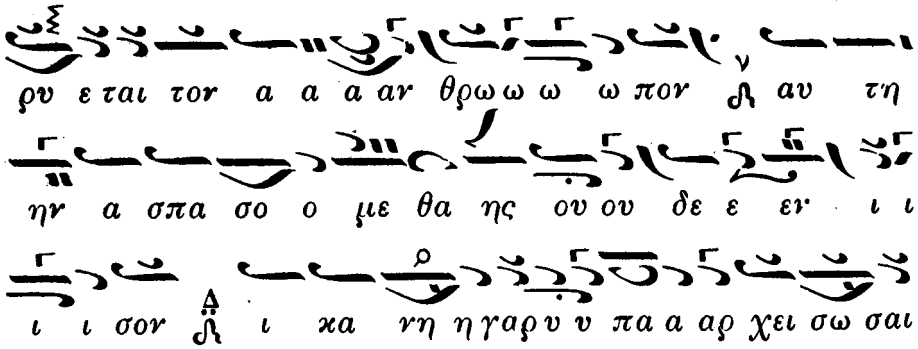 ρυ ε ται τον α α α αν θρω ω ω ω πον ν αυ τη
ην α σπα σο ο με θα ης ου ου δε ε εν ι ι
ι ι σον Δ ι κα νη η γαρ υ υ πα α αρ χει σω σαι